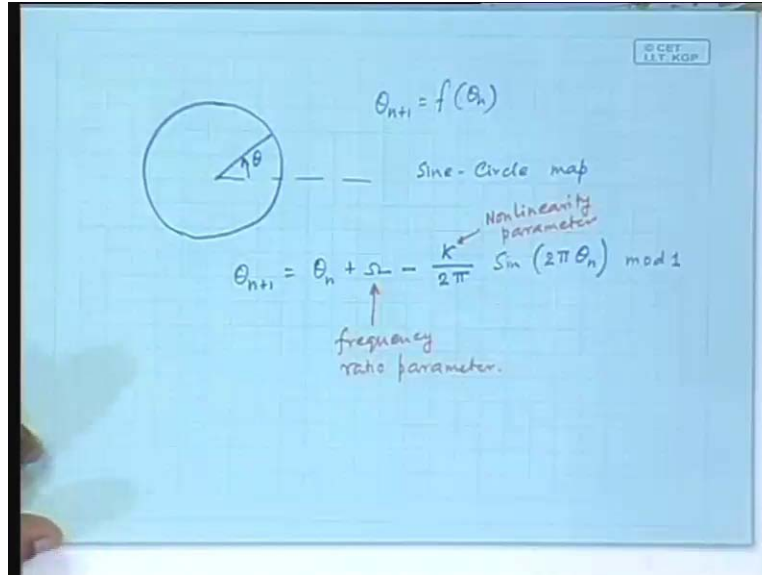 © CET
I.I.T. KGP
θₙ₊₁ = f(θₙ)
θ
Sine-Circle map
Nonlinearity
parameter
θₙ₊₁ = θₙ + Ω − K/2π Sin (2πθₙ) mod 1
frequency
ratio parameter.